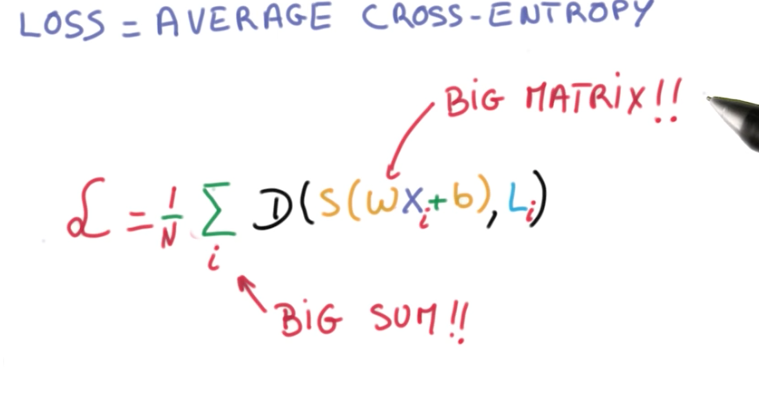 LOSS = AVERAGE CROSS-ENTROPY
BiG MATRiX!!
ℒ = 1/N Σ_i D(S(WX_i+b), L_i)
BiG SUM!!